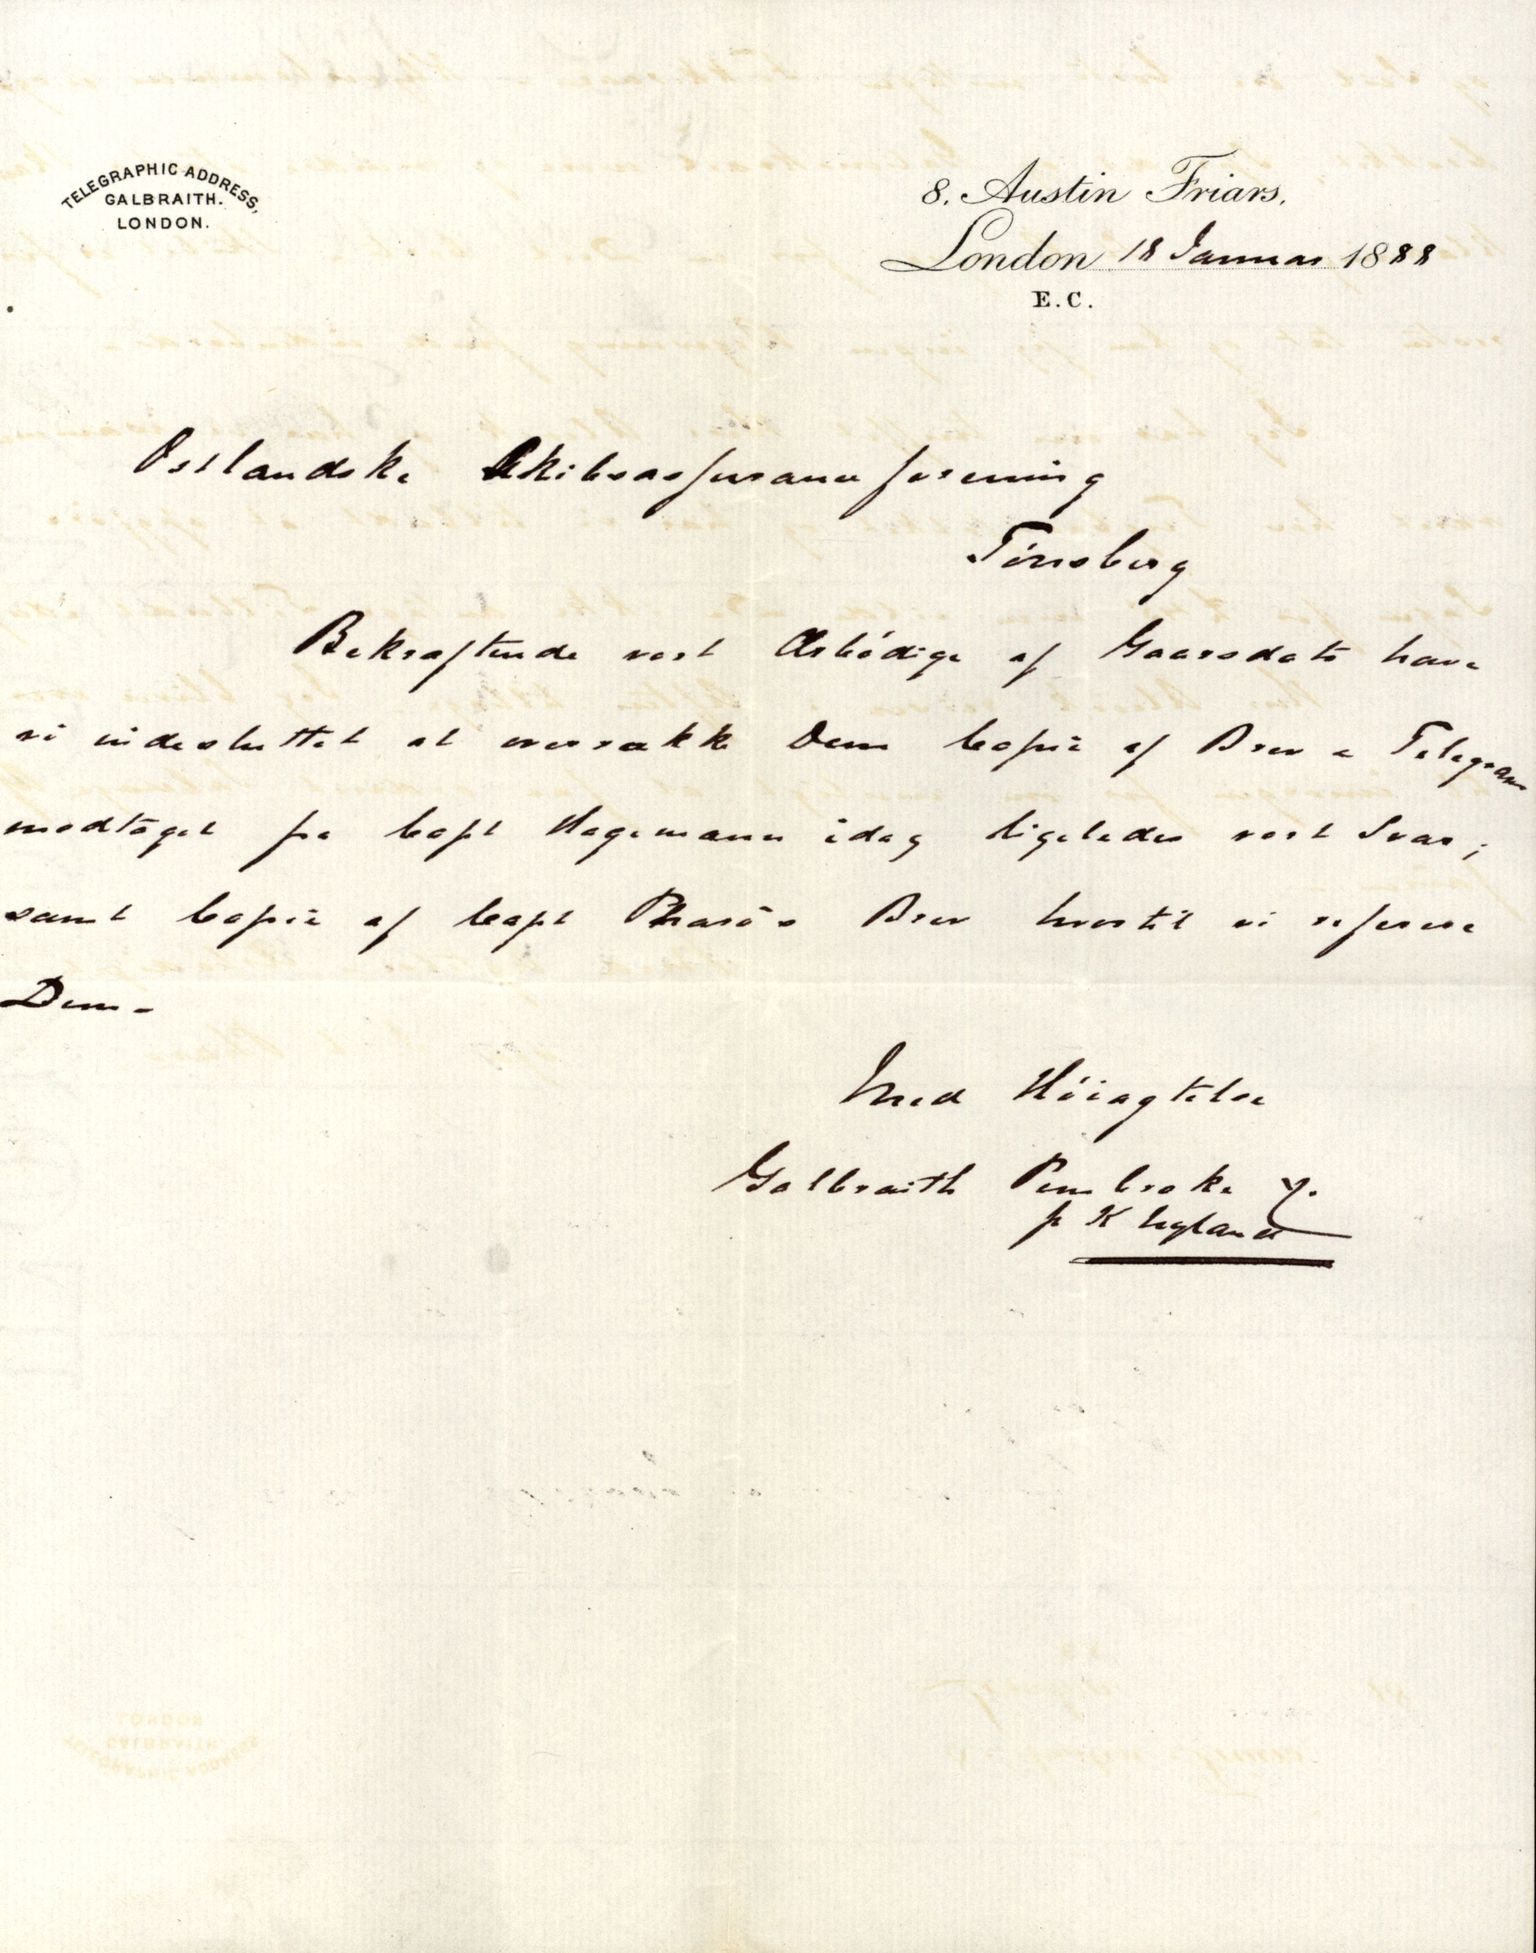 TELEGRAPHIC ADDRESS,
GALBRAITH.
LONDON.
8. Austin Friars.
London 18 Januar 1888
E.C.
Østlandske Skibsassuranceforening
Tönsberg
Bekræftende vort Ærbödige af Gaarsdato have
vi indesluttet at overrække Dem Copie af Brev & Telegram
modtaget fra Capt Hagemann idag ligeledes vort Svar,
samt Copie af Capt Brev hvortil vi referere
Dem-
Med Höiagtelse
Galbraith Pembroke
p K